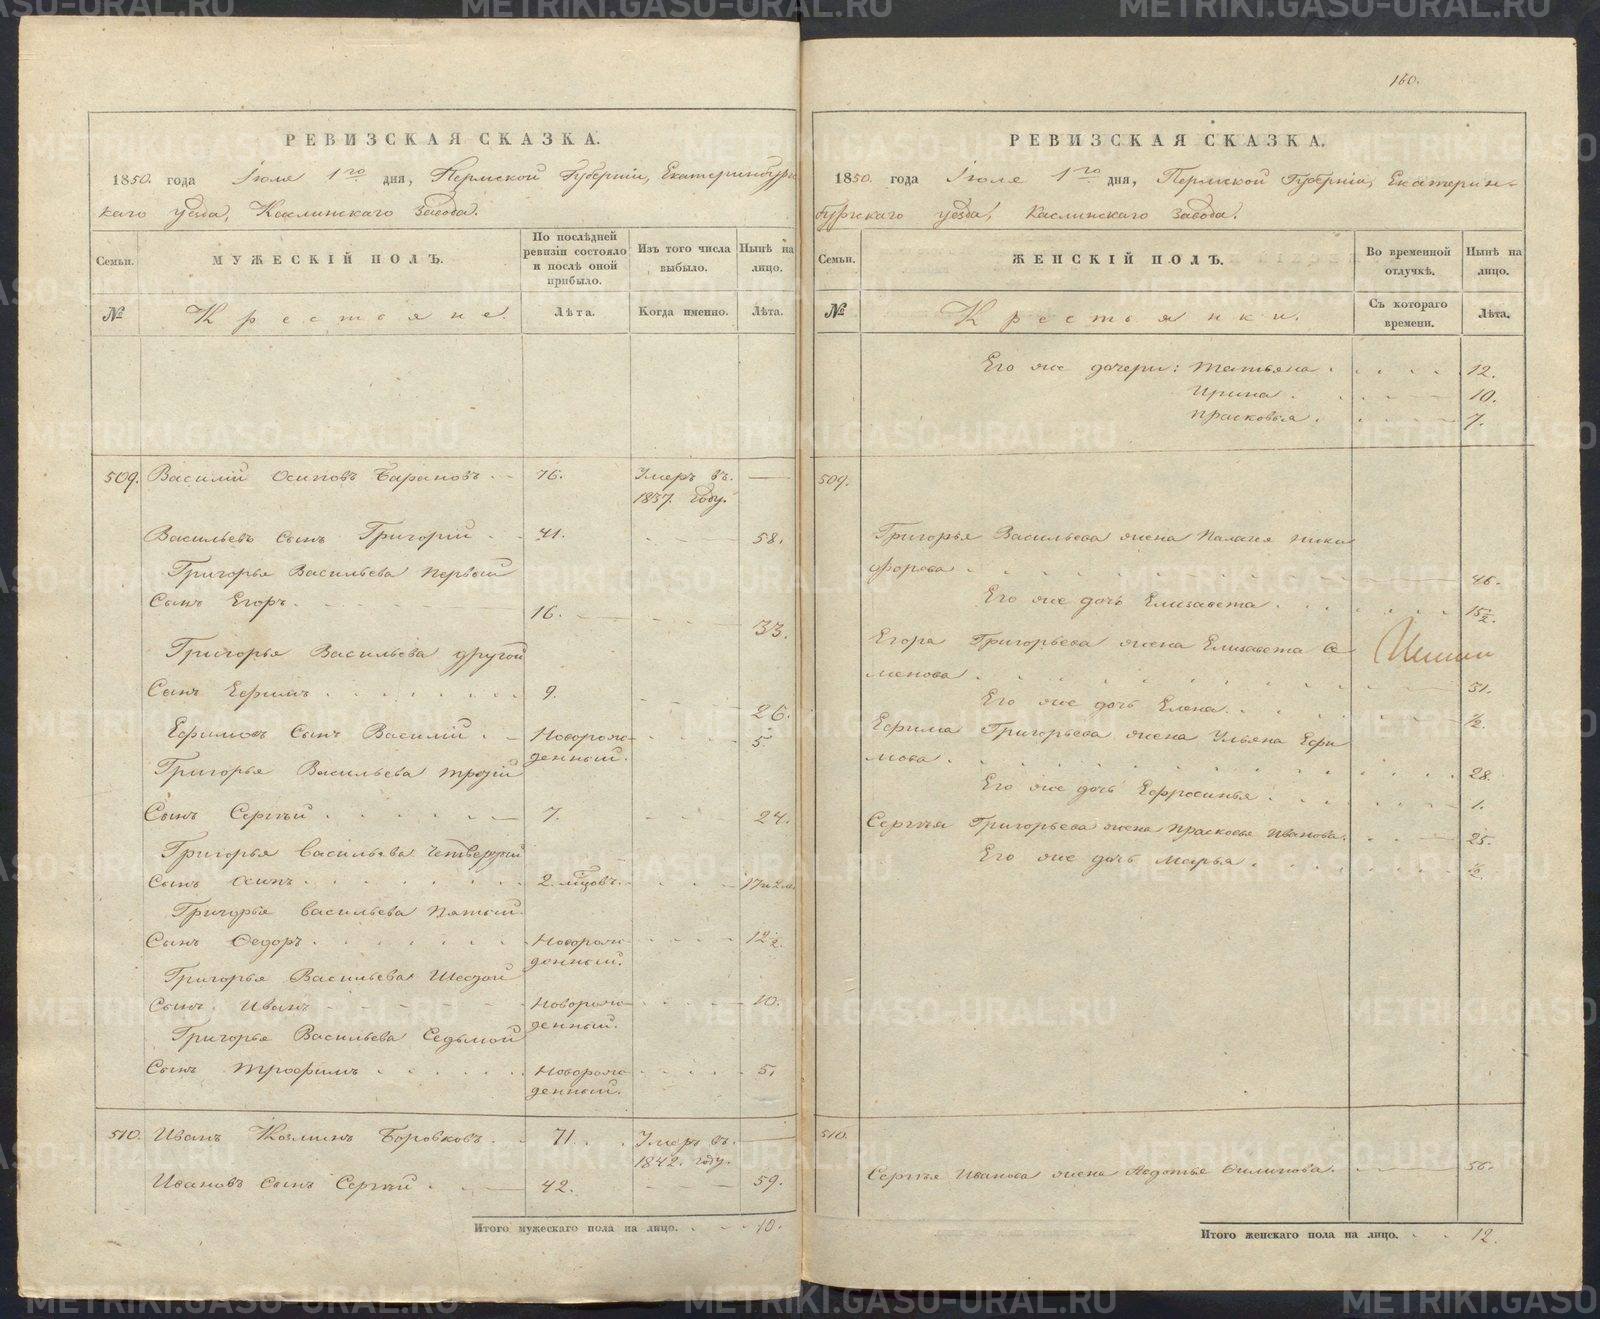 РЕВИЗСКАЯ СКАЗКА.
1850. года Іюля 1го дня, Пермской Губерніи, Екатеринбургс
каго уезда, Каслинскаго Завода.
Семьи.
МУЖЕСКІЙ ПОЛЪ.
По послѣдней ревизіи состояло и послѣ оной прибыло.
Изъ того числа выбыло.
Нынѣ на лицо.
№
Крестьяне.
Лѣта.
Когда именно.
Лѣта.
509. Василій Осиповъ Барановъ. 76. Умеръ въ
1837. году.
Васильевъ сынъ Григорій 41. 58.
Григорья Васильева первый
Сынъ Егоръ. 16. 33.
Григорья Васильева другой
Сынъ Ефимъ 9. 26.
Ефимовъ Сынъ Василій Новорож- 5
денный.
Григорья Васильева третій
Сынъ Сергѣй 7. 24.
Григорья Васильева четвертый
Сынъ Осипъ. 2. мѣсцовъ. 17 и 2 м.
Григорья Васильева пятый
Сынъ Федоръ. Новорож- 12 1/2.
денный.
Григорья Васильева Шестой
Сынъ Иванъ Новорож- 10.
денный.
Григорья Васильева Седьмой
Сынъ Трофимъ Новорож- 5.
денный.
510. Иванъ Козминъ Боровковъ. 71. Умеръ въ
1842. году.
Ивановъ сынъ Сергѣй 42. 59.
Итого мужескаго пола на лицо. 10.
160.
РЕВИЗСКАЯ СКАЗКА.
1850. года Іюля 1го дня, Пермской Губерніи, Екатерин-
бургскаго уезда, Каслинскаго Завода.
Семьи.
ЖЕНСКІЙ ПОЛЪ.
Во временной отлучкѣ.
Нынѣ на лицо.
№
Крестьянки.
Съ котораго времени.
Лѣта.
Его же дочери: Татьяна 12.
Ирина 10.
Прасковья 7.
509.
Григорья Васильева жена Палагея Ники
форова 46.
Его же дочь Елизавета 15 1/2.
Егора Григорьева жена Елизавета Се
менова 31.
Его же дочь Елена. 1/2.
Ефима Григорьева жена Ульяна Ефи
мова. 28.
Его же дочь Ефросинья 1.
Сергѣя Григорьева жена Прасковья Иванова. 25.
Его же дочь Марья 1/2.
510.
Сергѣя Иванова жена Авдотья Филипова. 56.
Итого женскаго пола на лицо. 12.
METRIKI.GASO-URAL.RU